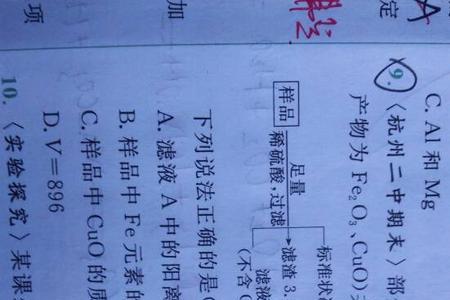 定
加
项
C. Al 和 Mg
9. 〈杭州二中期末〉部
产物为 Fe₂O₃、CuO)
标准状
样品 足量 稀硫酸,过滤
滤渣 3.
滤液
(不含
下列说法正确的是(
A. 滤液 A 中的阳离
B. 样品中 Fe 元素的
C. 样品中 CuO 的质
D. V=896
10. 〈实验探究〉某课